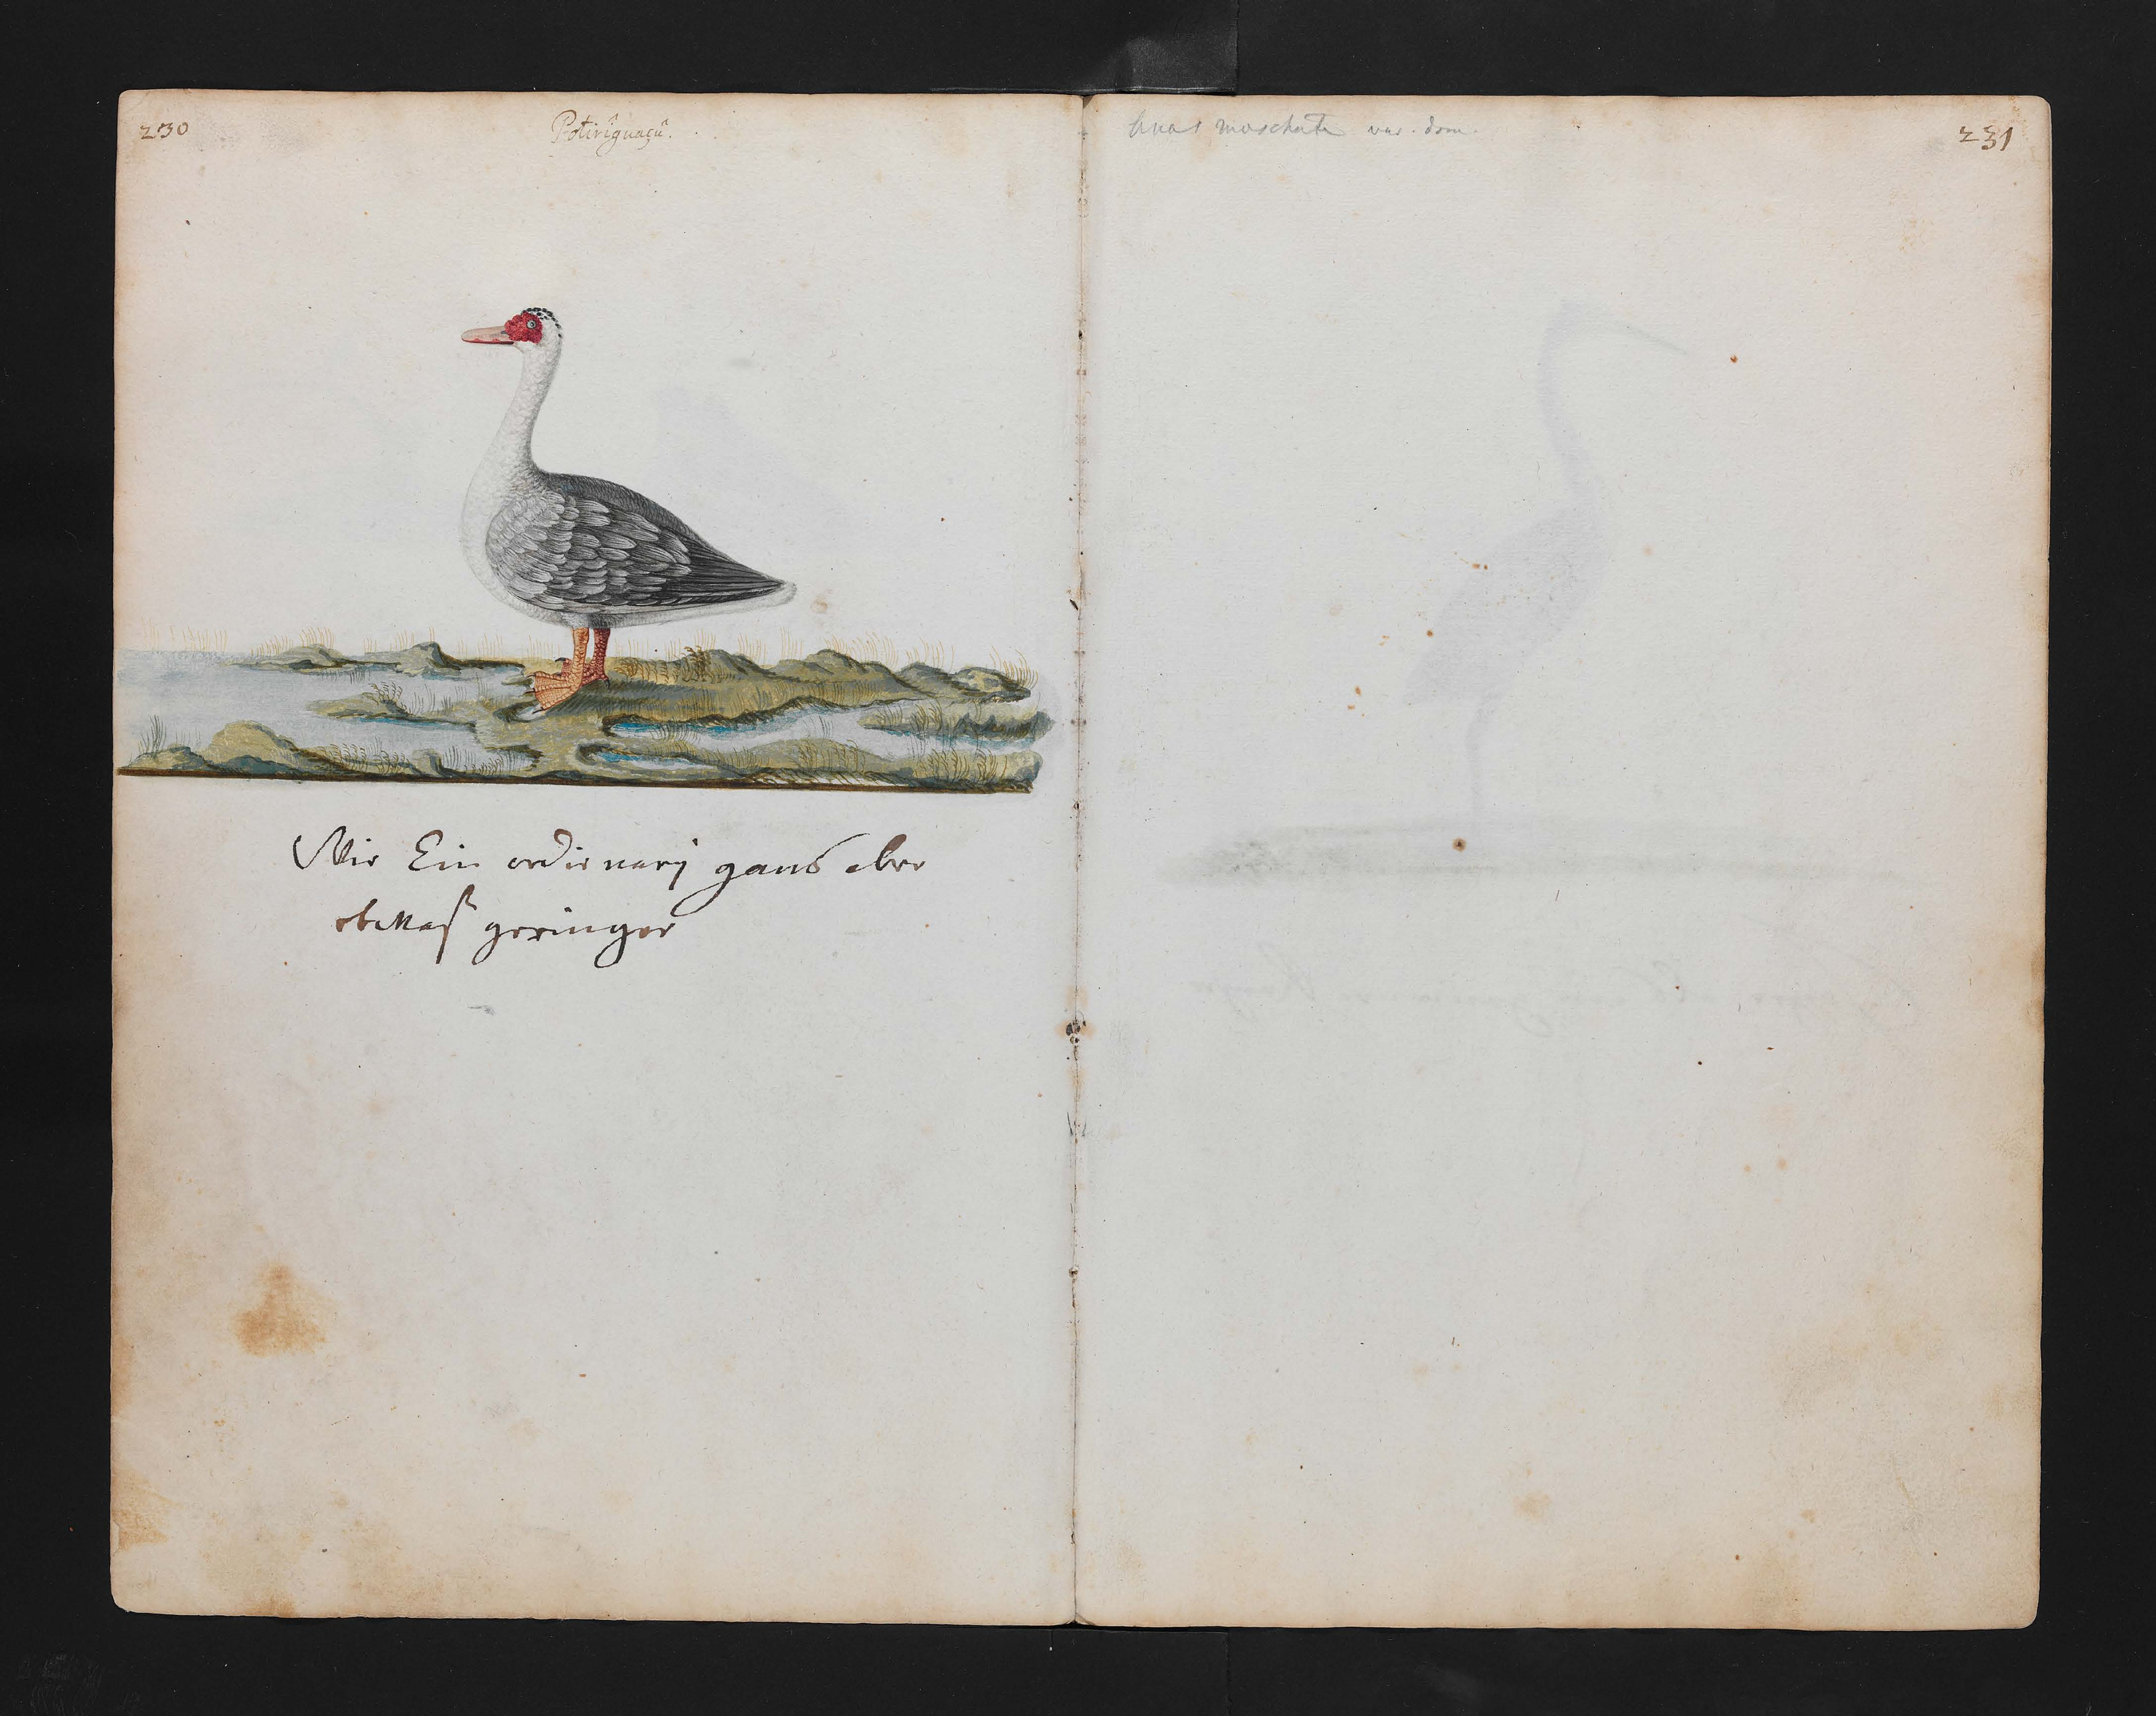 230
Potiriguaçû.
Wie Ein ordinarij gans aber
etwas geringer
Anas moschata var. dom.
231